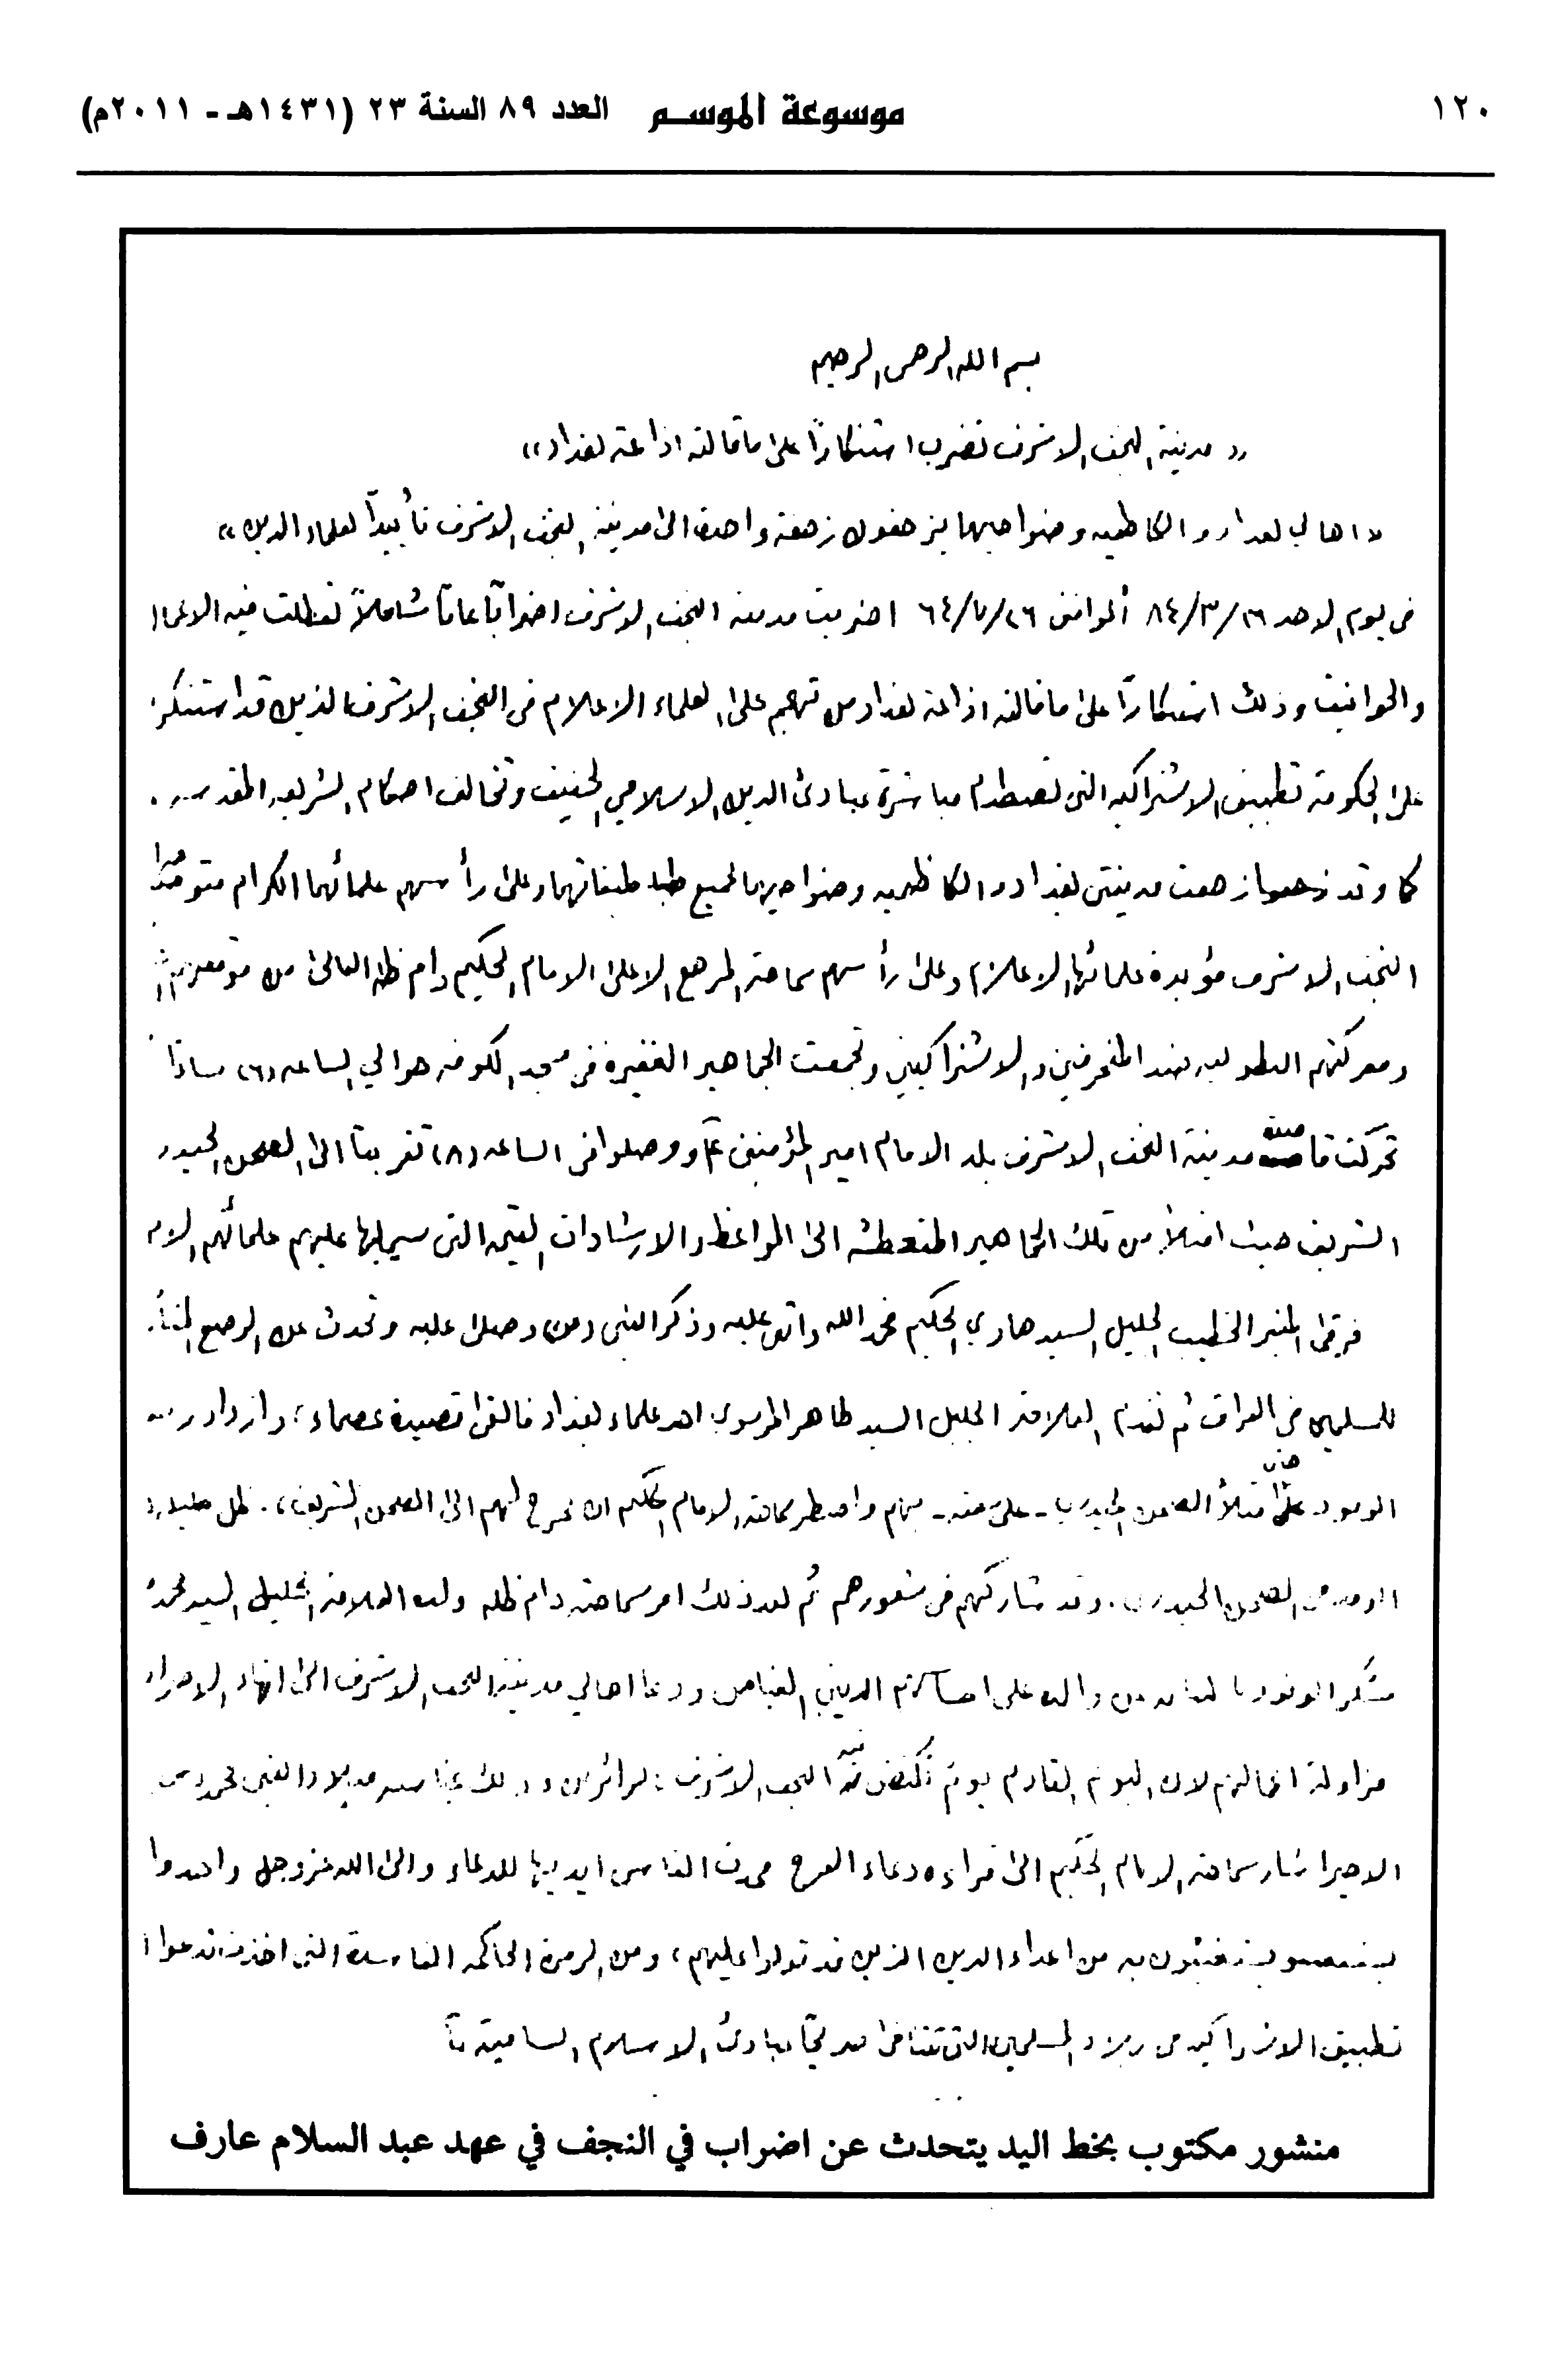 ١٢٠ موسوعة الموسم العدد ٨٩ السنة ٢٣ (١٤٣١هـ - ٢٠١١م)
بسم الله الرحمن الرحيم
« مدينة النجف الاشرف تضرب استنكاراً على ما قالته اذاعة بغداد »
« اهالي بغداد و الكاظميه وضواحيهما يزحفون زحفة واحدة الى مدينة النجف الاشرف تأييداً لعلماء الدين »
في يوم الاحد ١٦/٣/٨٤ ألموافق ٢٦/٧/٦٤ اضربت مدينة النجف الاشرف اضراباً عاماً شاملاً تعطلت فيه الاعمال
والحوانيت وذلك استنكاراً على ما قالته اذاعة بغداد من تهجم على العلماء الاعلام في النجف الاشرف الذين قد استنكر
على الحكومة تطبيق الاشتراكيه التي تصطدم مباشرة بمبادئ الدين الاسلامي الحنيف وتخالف احكام الشريعه المقدسه .
كما وقد زحفت مدينتي بغداد و الكاظميه وضواحيهما بجميع طبقاتهما وعلى رأسهم علمائهما الكرام متوجهاً
النجف الاشرف مؤيدة علمائها الاعلام وعلى رأسهم سماحة المرجع الاعلى الامام الحكيم دام ظله العالي من
ومعركتهم البطوليه ضد المنحرفين والاشتراكيين وتجمعت الجماهير الغفيرة في مسجد الكوفه حوالي الساعه (٦) مساءً
تحركت قاصدة مدينة النجف الاشرف بلد الامام امير المؤمنين ع ووصلوا في الساعه (٨) تقريباً الى الصحن الحيدر
الشريف حيث امتلأ من تلك الجماهير المتعطشه الى المواعظ والارشادات القيمه التي سيمليها عليهم علمائهم
فرقى المنبر الخطيب الجليل السيد هادي الحكيم فحمد الله واثنى عليه وذكر النبي وصلى عليه وتحدث عن الوضع
للمسلمين في العراق ثم تقدم العلامة الجليل السيد طاهر الموسوي احد علماء بغداد فالقى قصيدة عصماء ، وازداد
الوفود حتى امتلأ الصحن الحيدري - على سعته - بهم واضطر سماحة الامام الحكيم ان يخرج لهم الى الصحن الشريف ،.
الصحن الحيدري . وقد شاركهم في شعورهم ثم بعد ذلك امر سماحته دام ظله ولده العلامة الجليل السيد محمد
والده على الديني ودعا اهالي مدينة النجف الاشرف الى انهاء الاضراب
مزاولة اعمالهم لان اليوم القادم يوم تكتض فيه النجف الاشرف
الاخير اشار سماحة الامام الحكيم الى قراءة دعاء الفرج فمدت الناس ايديها للدعاء والى الله عز وجل
به من اعداء الدين الذين قد تولوا عليهم ، ومن الزمرة الحاكمه الفاسدة التي اخذت
تطبيق الاشتراكيه في بلاد المسلمين التي تتنافى مع مبادئ الاسلام الساميه
منشور مكتوب بخط اليد يتحدث عن اضراب في النجف في عهد عبد السلام عارف